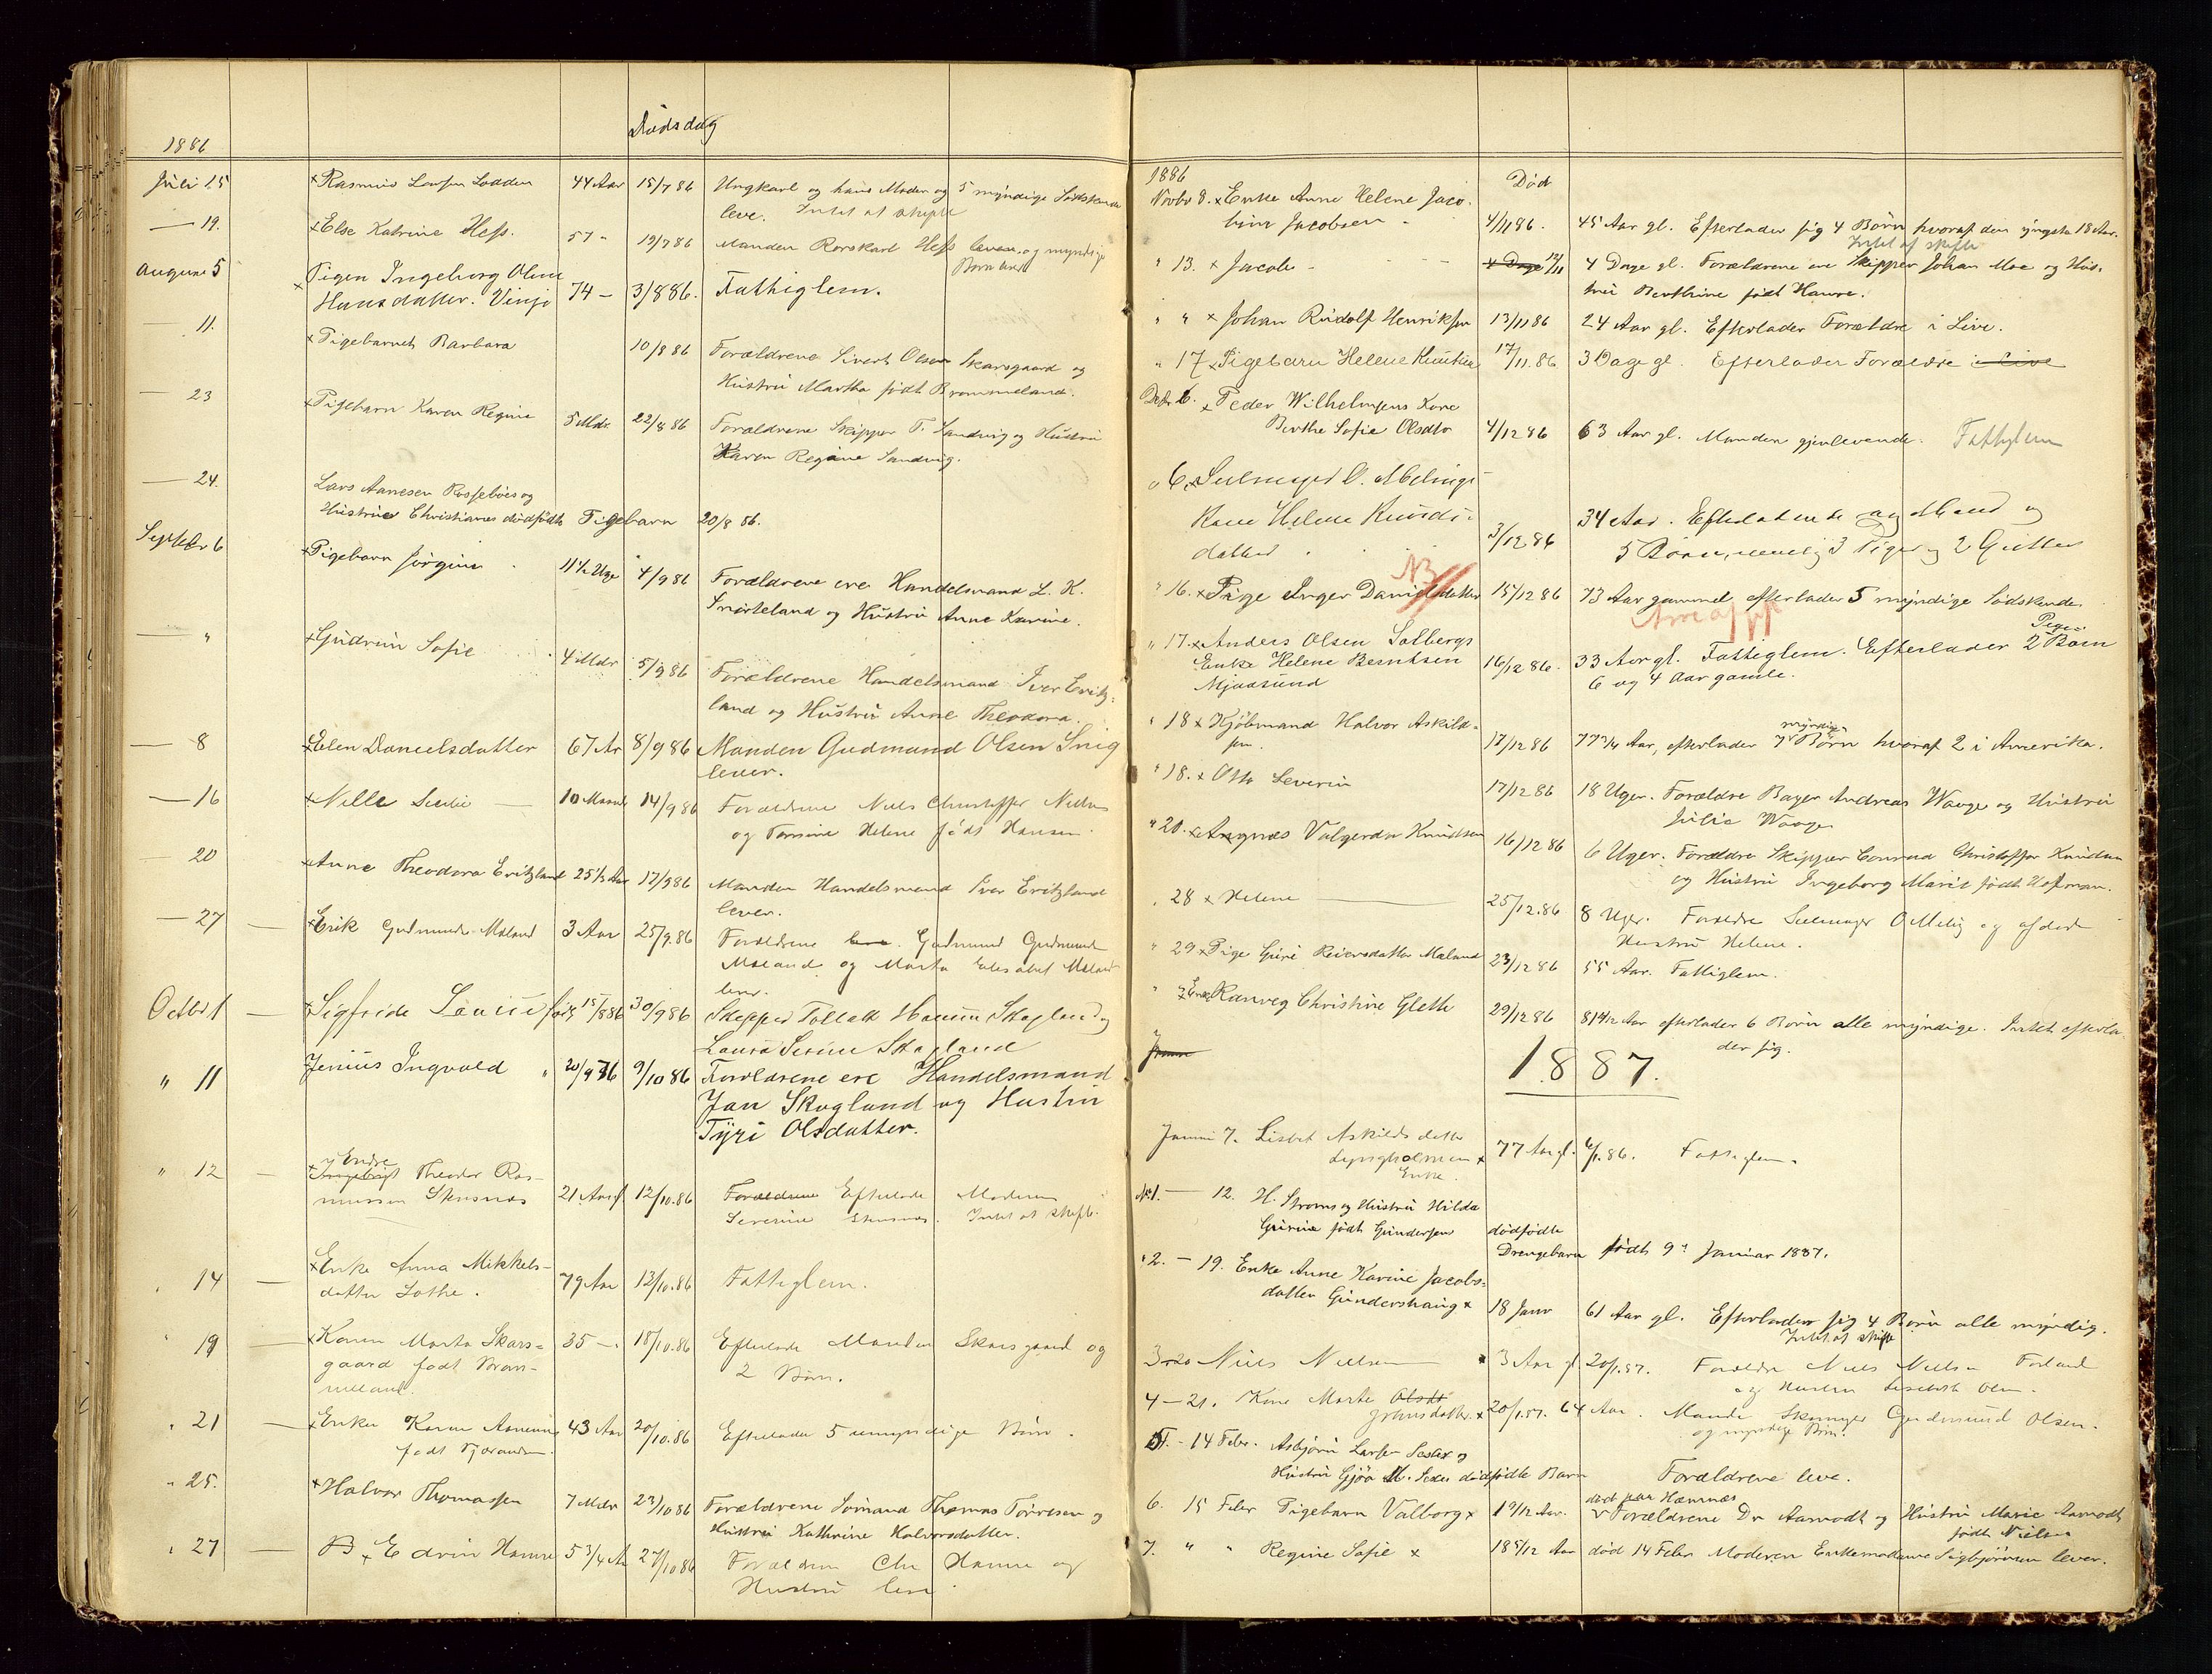 1886
Dødsdag
Juli 15 × Rasmus Larsen Lodden 44 Aar 15/7 86 Ungkarl og hans Moder og 5 myndige Sødskende
leve. Intet at skifte
— 19. × Else Katrine Hess. 57 " 19/7 86 Manden Rorskarl Hess lever og myndige
Børn
August 5 × Pigen Ingeborg Oline
Hansdatter. Vinje 74 — 3/8 86. Fattiglem.
— 11. × Pigebarnet Barbara 10/8 86 Forældrene Sivert Olsen Skarsgaard og
Hustru Martha født Brommeland.
— 23 × Pigebarn Karen Regine 5 Mdr. 22/8 86 Forældrene Skipper T. Sandvig og Hustru
Karen Regine Sandvig.
— 24. Lars Aanesen Rossebøes og
Hustrue Christianes dødfødte Pigebarn 20/8 86.
Septbr 6 × Pigebarn Jørgine 11 ½ Uge 4/9 86 Forældrene ere Handelsmand L. K.
Snørteland og Hustru Anne Karine.
— " × Gudrun Sofie 4 Mdr 5/9 86 Forældrene Handelsmand Iver Eritz-
land og Hustru Anne Theodora.
— 8 × Elen Danielsdatter 67 Ar 8/9 86 Manden Gudmand Olsen Snig
lever.
— 16 × Nille — 10 14/9 86 Forældrene Niels Christoffer Nielsen
og Tomine Helene født Hansen.
— 20 × Anne Theodora Eritzland 25 ½ Aar 17/9 86 Manden Handelsmand Iver Eritzland
lever.
— 27 — × Erik Gudmunds. Maland 3 Aar 25/9.86 Forældrene Gudmund Gudmunds.
Maland og Marta Elisabet Maland
lever.
Octbr 1 — × Sigfride født 15/8 86 30/9 86 Skipper Tollak Skogland og
Laura Skogland
" 11 Jenius Ingvald " 20/9 86 9/10 86 Forældrene ere Handelsmand
Jan Skogland og Hustru
Tyri Olsdatter.
" 12 — × Endre Theodor Ras-
mussen Skeisnæs 21 Aar gl 12/10.86 Forældrene Efterlader Moderen
Severine Skeisnæs. Intet at skifte.
" 14 — × Enke Anna Mikkels-
datter Lothe. 79 Aar 12/10.86 Fattiglem.
" 19 — × Karen Marta Skars-
gaard født Brom-
meland. 35 — 18/10.86 Efterlader Manden Skarsgaard og
2 Børn.
" 21 — × Enke Karen
født 43 Aar 20/10.86 Efterlader 5 umyndige Børn.
" 25. × Halvor Thomassen 7 Mdr 23/10 86 Forældrene Sømand Thomas Tørresen og
Hustru Kathrine Halvorsdatter.
" 27 — B × Edvin Hamre 5 3/4 Ar 27/10 86 Forældrene Chr Hamre og
Hustru leve.
1886 Død
Novbr 8. × Enke Anne Helene Jaco-
bine Jacobsen - 4/11 86. 45 Aar gl. Efterlader sig 4 Børn hvoraf den yngste 18 Aar.
Intet at skifte
" 13. × Jacob - - - - 4 Dage 12/11 4 Dage gl. Forældrene ere Skipper Johan Moe og Hus-
tru Berthine født Hamre.
" " × Johan Rudolf Henriksen 13/11 86 24 Aar gl. Efterlader Forældre i Live.
" 17 × Pigebarn Helene 17/11.86 3 Dage gl. Efterlader Forældre i Live
Decbr 6. × Peder Wilhelmsens Kone
Berthe Sofie Olsdtr 4/12 86 63 Aar gl. Manden gjenlevende. Fattiglem
" 6 × Seilmager O. Melings
Kone Helene Knuds-
datter 3/12 86 34 Aar. Efterladende sig Mand og
5 Børn, nemlig 3 Piger og 2 Gutter
NB
" 16. × Pige Inger Danielsdatter 15/12 86 73 Aar gammel efterlader 5 myndige Sødskende.
" 17. × Anders Olsen Solbergs
Enke Helene Berntsen
Mjaasund 16/12 86. 33 Aar gl. Fattiglem. Efterlader 2 Pige Børn
6 og 4 Aar gamle.
" 18 × Kjøbmand Halvor Askild-
sen. 17/12 86 77 3/4 Aar, efterlader 7 myndige Børn hvoraf 2 i Amerika.
" 18. × Otto Severin 17/12 86 18 Uger. Forældre Bager Andreas Waage og Hustru
Julie Waage
" 20. × Angnæs Valgerda Knudsen 16/12 86 6 Uger. Forældre Skipper Conrad Christoffer Knudsen
og Hustru Ingeborg Marie født Hofman.
" 28 × Helene — 25/12.86 8 Uger. Forældre Seilmager O Meling og afdøde
Hustru Helene.
" 29 × Pige Guri Reiersdatter Maland 23/12 86 55 Aar. Fattiglem.
" " × Enke Ranveg Christine Gletle 29/12 86 81 Aar efterlader 6 Børn alle myndige. Intet efterla-
der sig.
1887.
Januar 7. Lisbet Askildsdatter
Lyngholmen ×
Enke. 77 Aar gl. 6/1.86. Fattiglem.
No. 1. — 12. H. Strøms og Hustru Hilda
Gurine født Gundersen dødfødte
Drengebarn født 9de Januar 1887.
" 2. — 19. Enke Anne Karine Jacobs-
datter Gundershaug × 18 Janr 61 Aar gl. Efterlader sig 4 Børn alle myndig.
Intet at skifte
3 - 20 Niels Nielsen × 3 Aar gl 20/1.87. Forældre Niels Nielsen Forland
og Hustru Lisebeth Olsn.
4 — 21. Kone Marte Olsdt
× 20/1.87. 64 Aar. Manden Gudmund Olsen.
og myndige Børn.
5. - 14 Febr. Asbjørn Larsen og
Hustru Gjøa M. dødfødte Barn Forældrene leve.
6. 15 Febr Pigebarn Valborg × 1 9/12 Aar. død paa Hamnæs
Forældrene Dr Aamodt og Hustru Marie Aamodt
født Nielsen
7. " " Regine Sofie × 18 5/12 Aar død 14 Febr Moderen Enkemadame Sigbjørnsen lever.